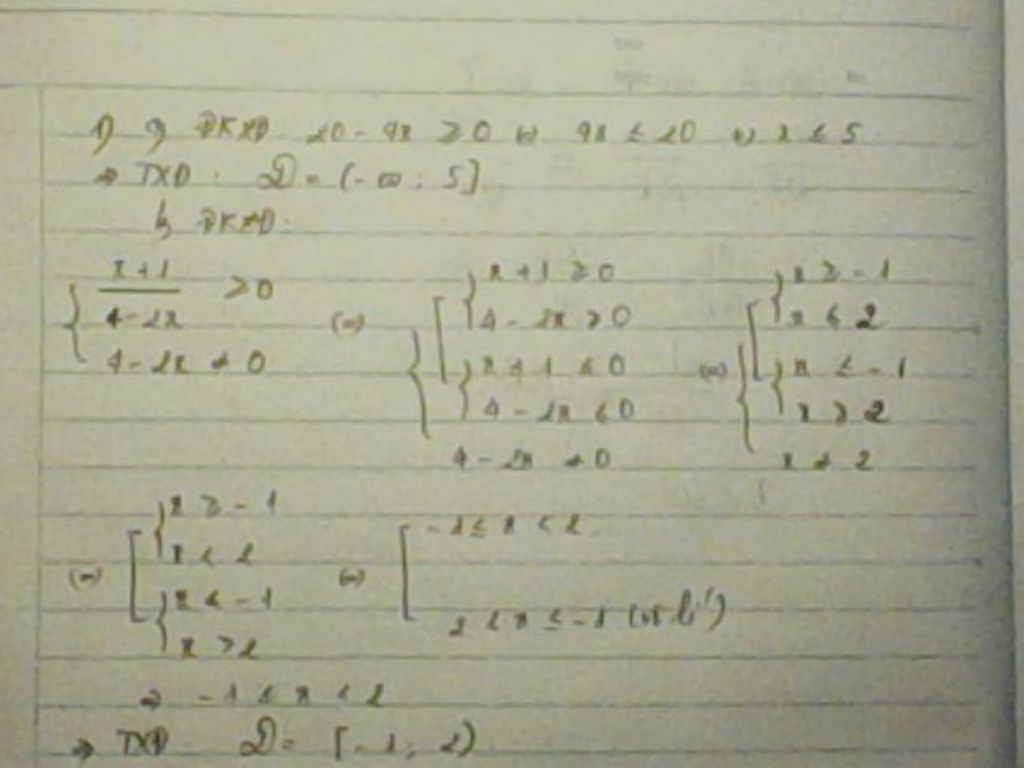 1) a) ĐKXĐ 20 - 4x ≥ 0 (=) 4x ≤ 20 (=) x ≤ 5
=> TXĐ : D = (-∞ ; 5]
b) ĐKXĐ:
{ (x+1)/(4-2x) ≥ 0 ; 4-2x ≠ 0 (=) { [ { x+1 ≥ 0 ; 4-2x > 0 ; { x+1 ≤ 0 ; 4-2x < 0 ; 4-2x ≠ 0 (=) { [ { x ≥ -1 ; x < 2 ; { x ≤ -1 ; x > 2 ; x ≠ 2
(=) [ { x ≥ -1 ; x < 2 ; { x ≤ -1 ; x > 2 (=) [ -1 ≤ x < 2 ; 2 < x ≤ -1 (vô lí)
=> -1 ≤ x < 2
=> TXĐ D = [-1 ; 2)